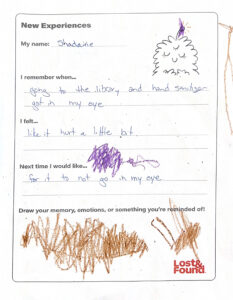 New Experiences
My name: Shadaine
I remember when...
going to the library and hand sanitizer
got in my eye
I felt...
like it hurt a little bit.
Next time I would like...
for it to not go in my eye
Draw your memory, emotions, or something you're reminded of!
Lost&
Found